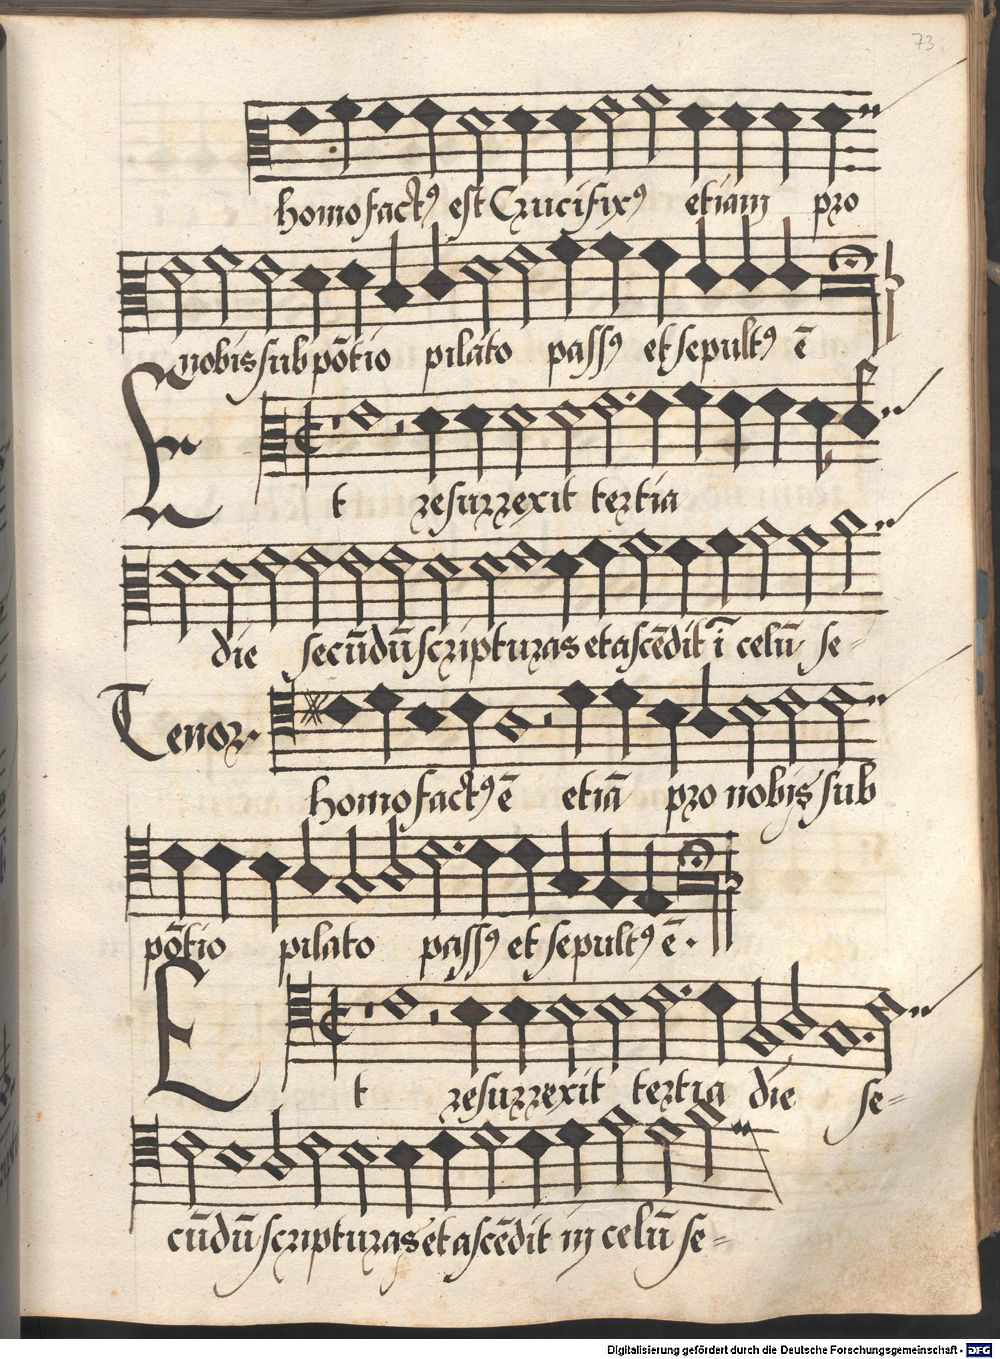 73
homo fact⁹ est Crucifix⁹ etiam pro
nobis sub põtio pilato pass⁹ et sepult⁹ ē
Et resurrexit tertia
die secũdũ scripturas et ascẽdit ī celũ se=
Tenor.
homo fact⁹ ē etiã pro nobis sub
põtio pilato pass⁹ et sepult⁹ ē.
Et resurrexit tertia die se=
cũdũ scripturas et ascẽdit in celũ se=
Digitalisierung gefördert durch die Deutsche Forschungsgemeinschaft - DFG